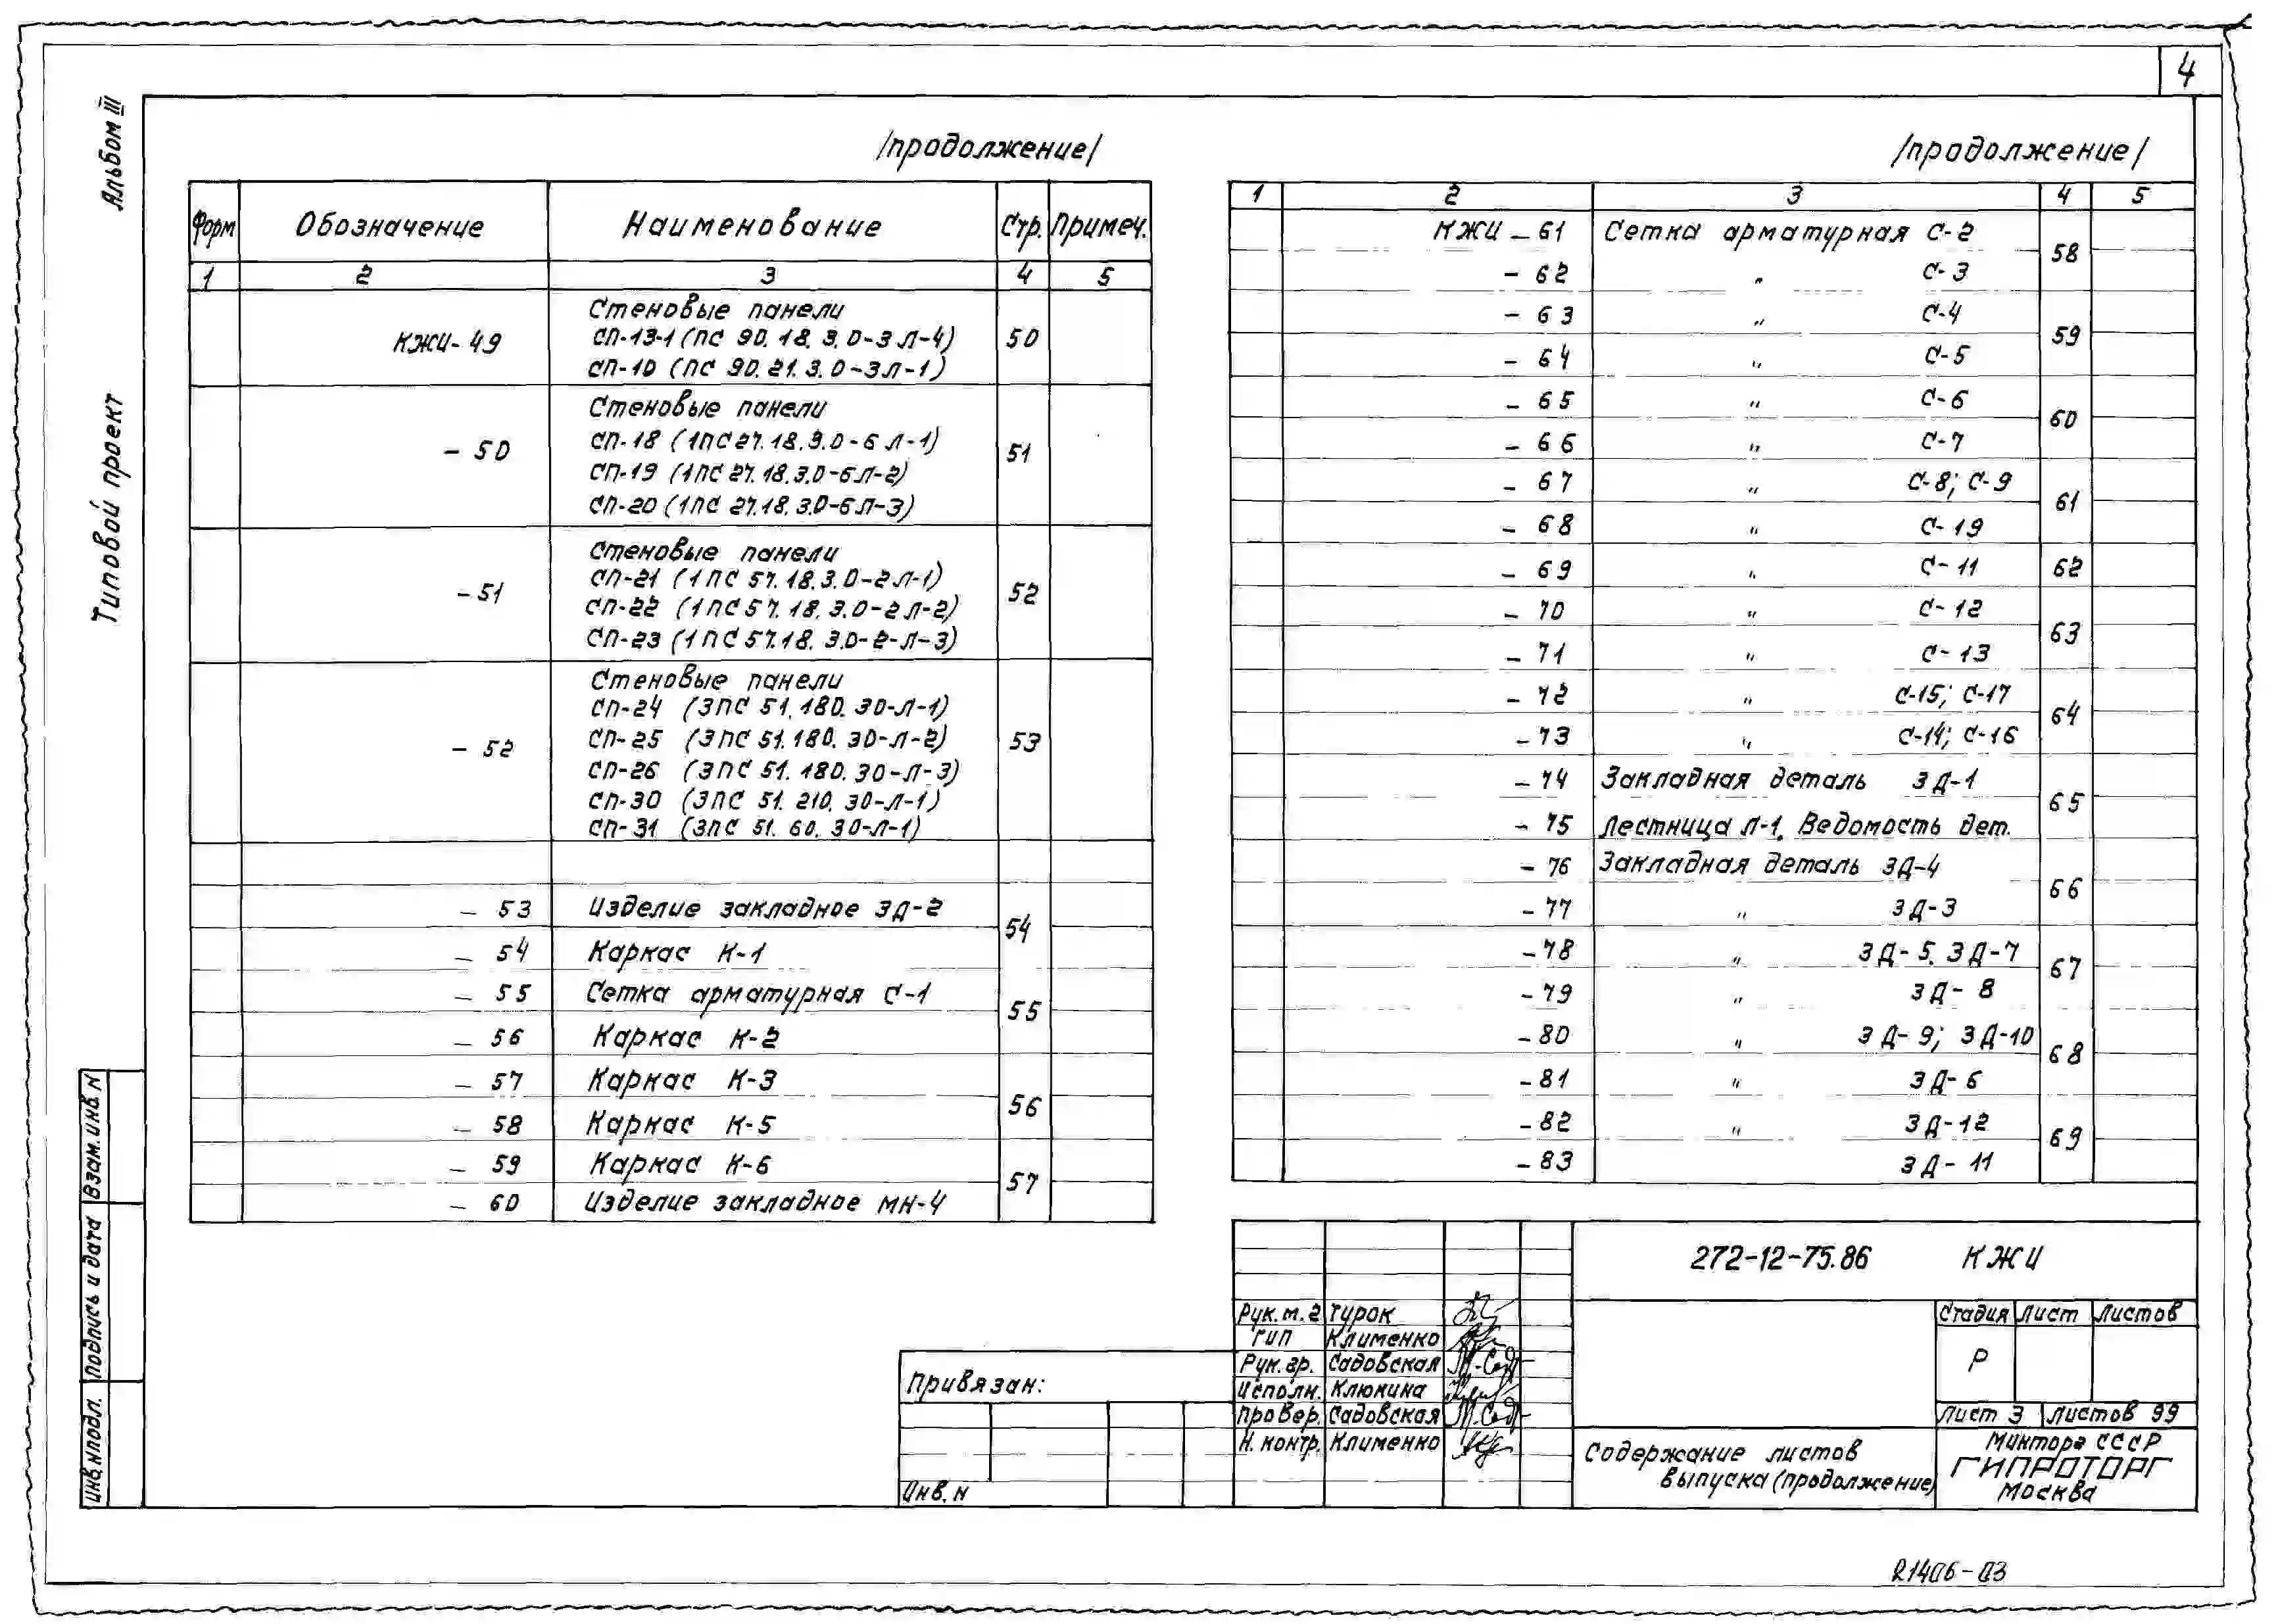 4
Альбом III
Типовой проект
/продолжение/
Форм Обозначение Наименование Стр. Примеч.
1 2 3 4 5
КЖИ-49 Стеновые панели 50
СП-13-1 (ПС 90.18.3.0-3Л-4)
СП-10 (ПС 90.21.3.0-3Л-1)
- 50 Стеновые панели 51
СП-18 (1ПС 27.18.3.0-6Л-1)
СП-19 (1ПС 27.18.3.0-6Л-2)
СП-20 (1ПС 27.18.3.0-6Л-3)
- 51 Стеновые панели 52
СП-21 (1ПС 57.18.3.0-2Л-1)
СП-22 (1ПС 57.18.3.0-2Л-2)
СП-23 (1ПС 57.18.3.0-2-Л-3)
- 52 Стеновые панели 53
СП-24 (3ПС 51.180.30-Л-1)
СП-25 (3ПС 51.180.30-Л-2)
СП-26 (3ПС 51.180.30-Л-3)
СП-30 (3ПС 51.210.30-Л-1)
СП-31 (3ПС 51.60.30-Л-1)
- 53 Изделие закладное ЗД-2 54
- 54 Каркас К-1
- 55 Сетка арматурная С-1 55
- 56 Каркас К-2
- 57 Каркас К-3 56
- 58 Каркас К-5
- 59 Каркас К-6 57
- 60 Изделие закладное МН-4
/продолжение/
1 2 3 4 5
КЖИ - 61 Сетка арматурная С-2 58
- 62 " С-3
- 63 " С-4 59
- 64 " С-5
- 65 " С-6 60
- 66 " С-7
- 67 " С-8; С-9 61
- 68 " С-19
- 69 " С-11 62
- 70 " С-12 63
- 71 " С-13
- 72 " С-15; С-17 64
- 73 " С-14; С-16
- 74 Закладная деталь ЗД-1 65
- 75 Лестница Л-1. Ведомость дет.
- 76 Закладная деталь ЗД-4 66
- 77 " ЗД-3
- 78 " ЗД-5. ЗД-7 67
- 79 " ЗД-8
- 80 " ЗД-9; ЗД-10 68
- 81 " ЗД-6
- 82 " ЗД-12 69
- 83 ЗД-11
Взам. инв. N
Подпись и дата
Инв. N подл.
Привязан:
Инв. N
272-12-75.86 КЖИ
Рук. м. 2 Турок
ГИП Клименко
Рук. гр. Садовская
Исполн. Клюкина
Провер. Садовская
Н. контр. Клименко
Стадия Лист Листов
Р
Лист 3 Листов 99
Содержание листов
выпуска (продолжение)
Минторг СССР
ГИПРОТОРГ
Москва
21406-03